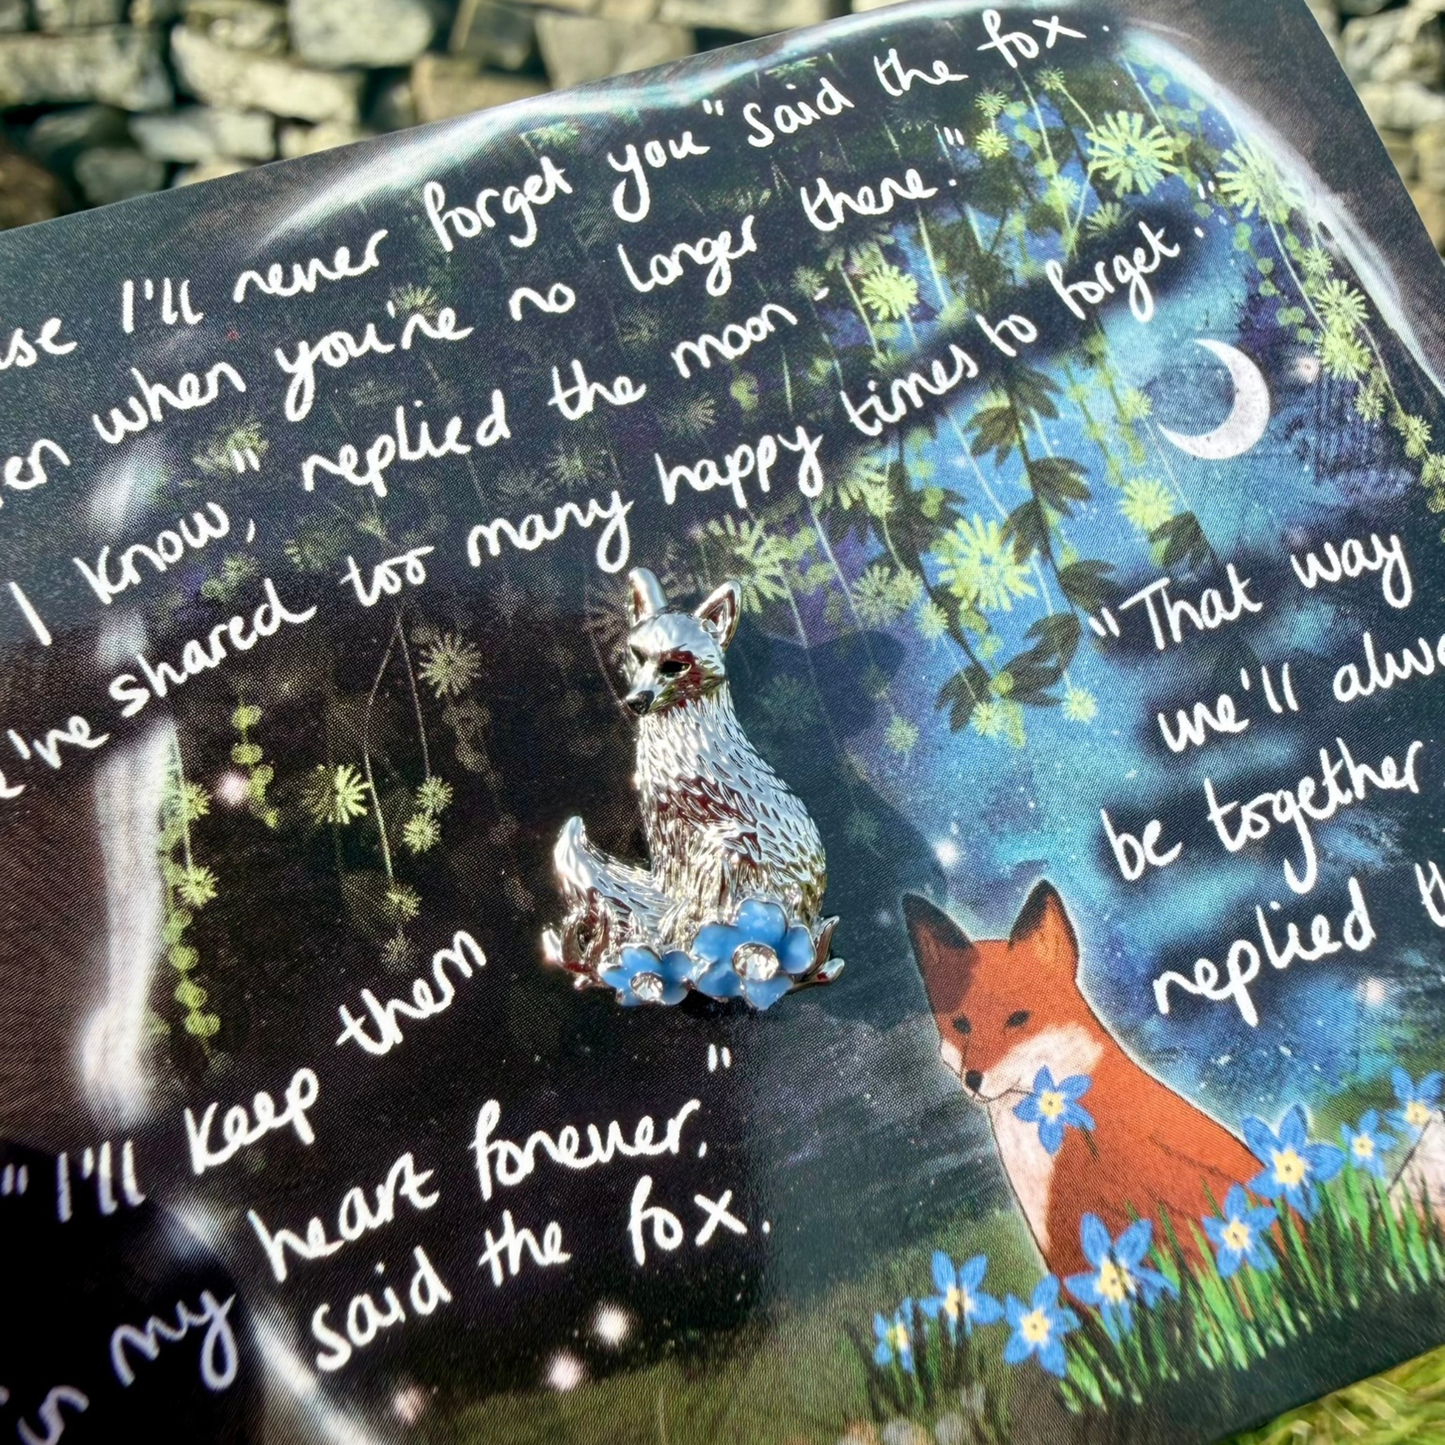 I'll never forget you" said the fox.
when you're no longer there."
I know," replied the moon.
've shared too many happy times to forget."
"That way
we'll
be together
replied
"I'll keep them
in my heart forever."
said the fox.